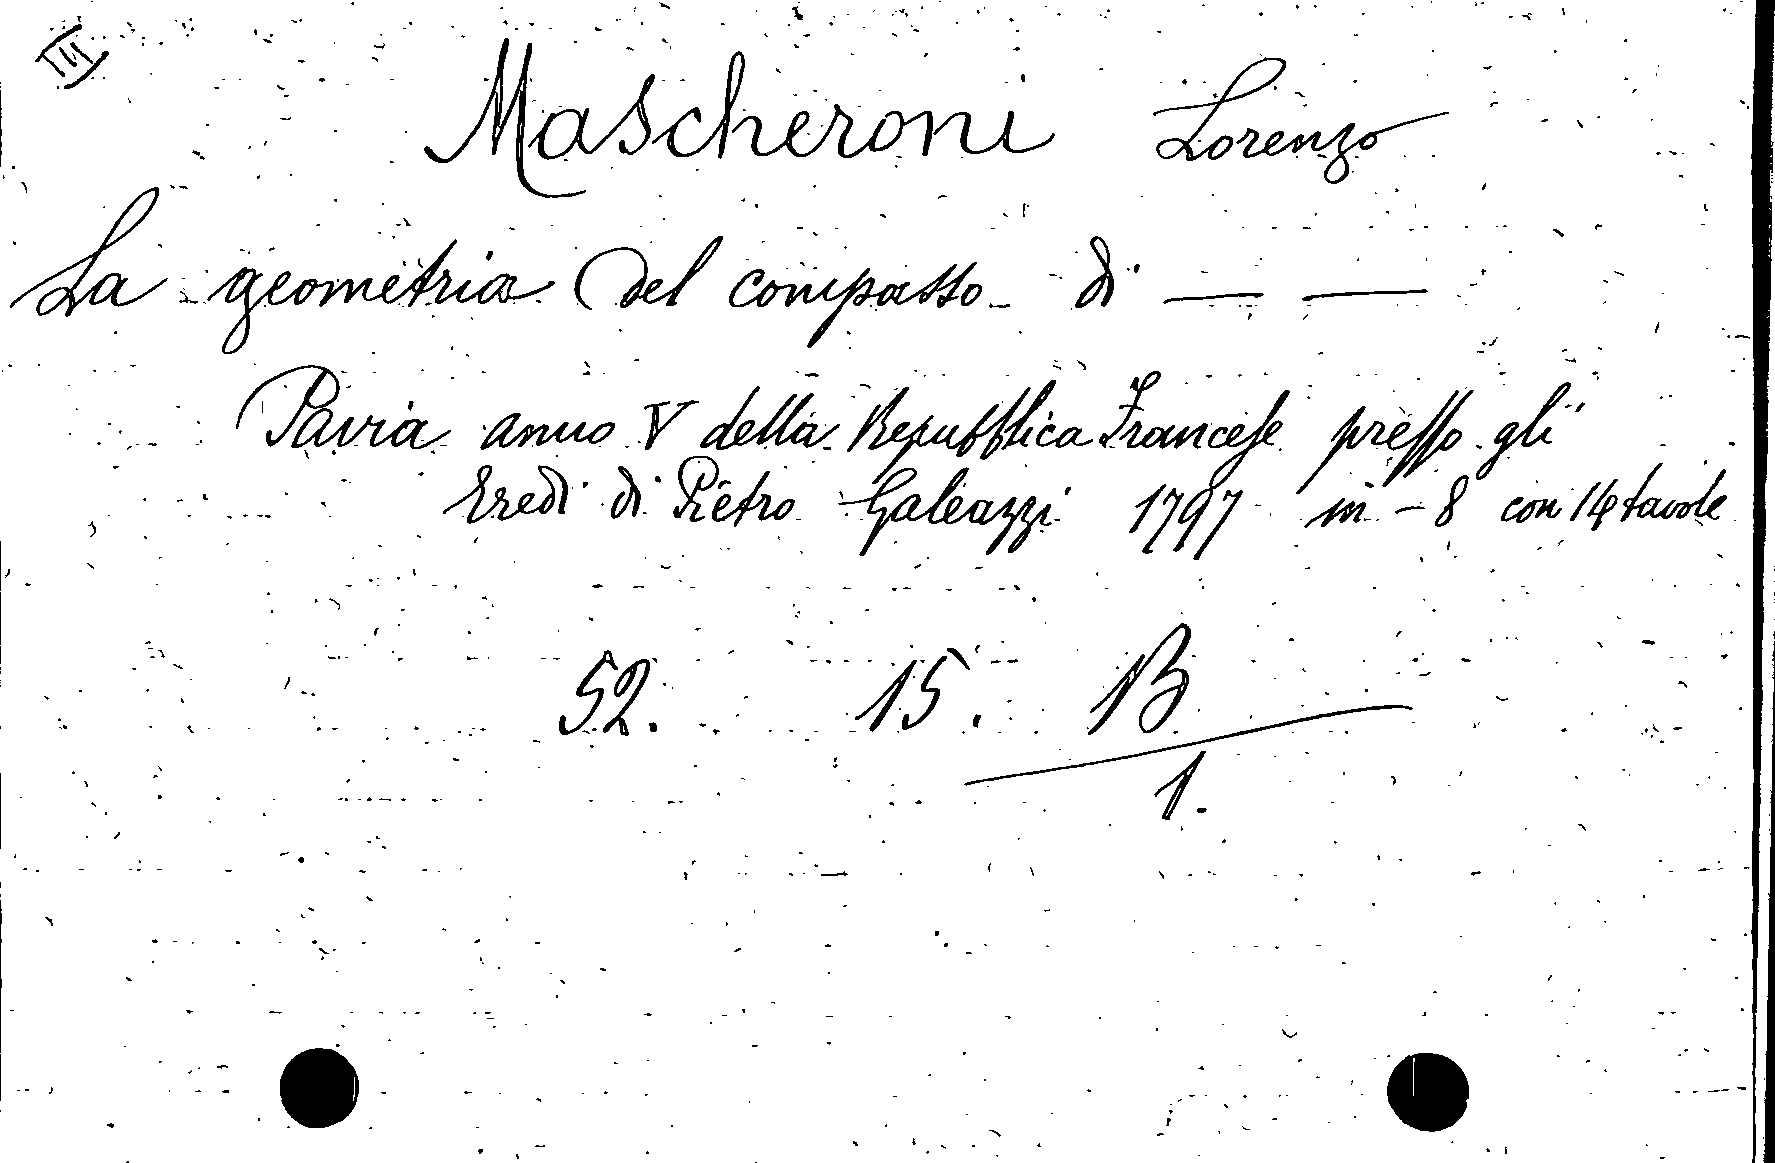 Mascheroni Lorenzo
La geometria del compasso di — —
Pavia anno V della Repubblica Francese presso gli
Eredi di Pietro Galeazzi 1797 in - 8 con 14 tavole
52. 15. B
1.